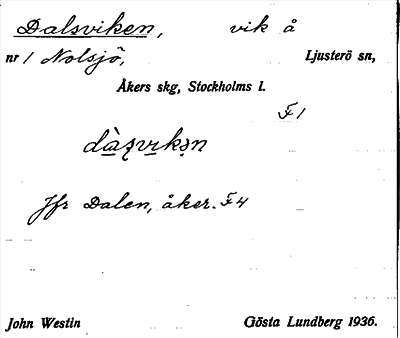 Dalsviken, vik å
nr 1 Nolsjö, Ljusterö sn,
Åkers skg, Stockholms l.
F1
Jfr Dalen, åker. F4
John Westin Gösta Lundberg 1936.